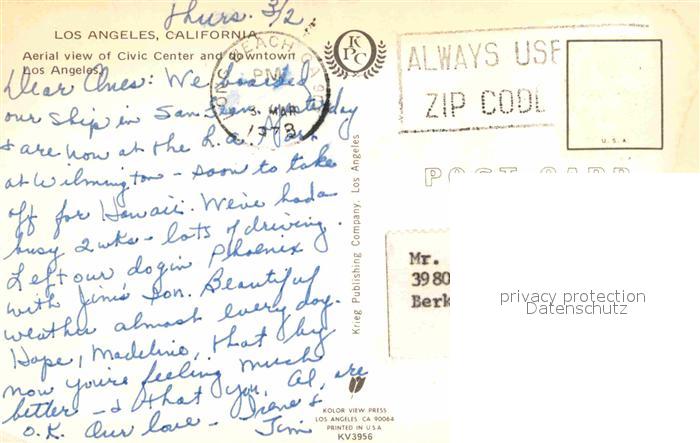 Thurs. 3/2
LOS ANGELES, CALIFORNIA
Aerial view of Civic Center and downtown
Los Angeles
Dear Ones: We boarded
our ship in San Fran. yesterday
& are now at the L.A. Port
at Wilmington – soon to take
off for Hawaii. We've had a
busy 2 wks – lots of driving.
Left our dog in Phoenix
with Jim's son. Beautiful
weather almost every day.
Hope, Madeline, that by
now you're feeling much
better – & that you, Al, are
O.K. Our love – Irene &
Jim
LONG BEACH, CA
PM
3 MAR
1973
K
P C
ALWAYS USE
ZIP CODE
U.S.A.
POST CARD
Krieg Publishing Company, Los Angeles
Mr.
3980
Berk
privacy protection
Datenschutz
KOLOR VIEW PRESS
LOS ANGELES, CA 90064
PRINTED IN U.S.A.
KV3956